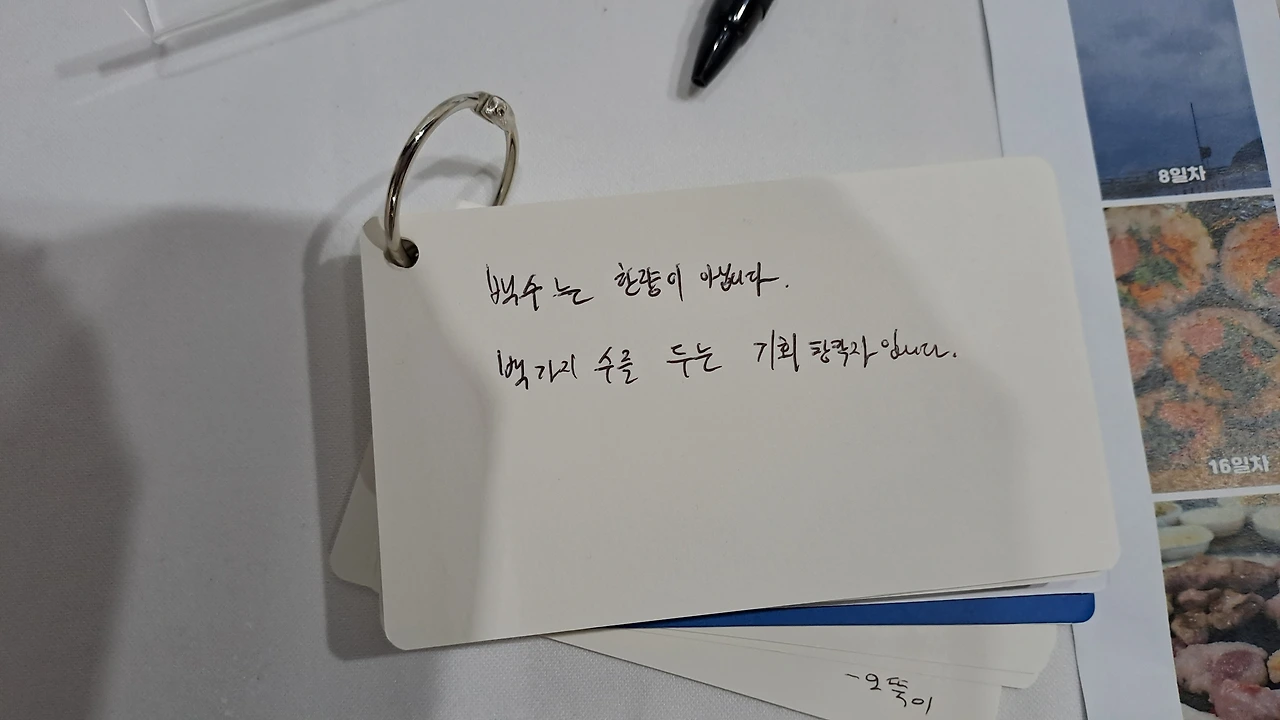 백수는 한량이 아닙니다.
백가지 수를 두는 기획 창작자입니다.
-오뚝이
8일차
16일차